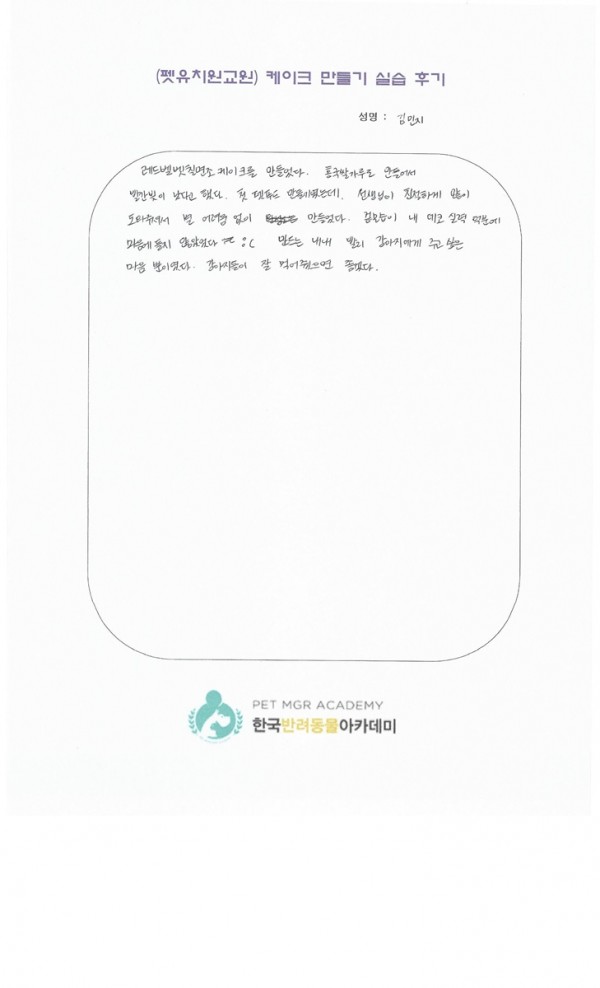 (펫유치원교원) 케이크 만들기 실습 후기
성명 : 김민지
레드벨벳칠면조 케이크를 만들었다. 홍국쌀가루로 만들어서
빨간빛이 난다고 했다. 첫 펫푸드 만들기였는데, 선생님이 친절하게 많이
도와주셔서 별 어려움 없이 만들었다. 겉모습이 내 데코 실력 덕분에
마음에 들지 않았었다 ㅠ :( 만드는 내내 빨리 강아지에게 주고 싶은
마음 뿐이였다. 강아지들이 잘 먹어줬으면 좋겠다.
PET MGR ACADEMY
한국반려동물아카데미